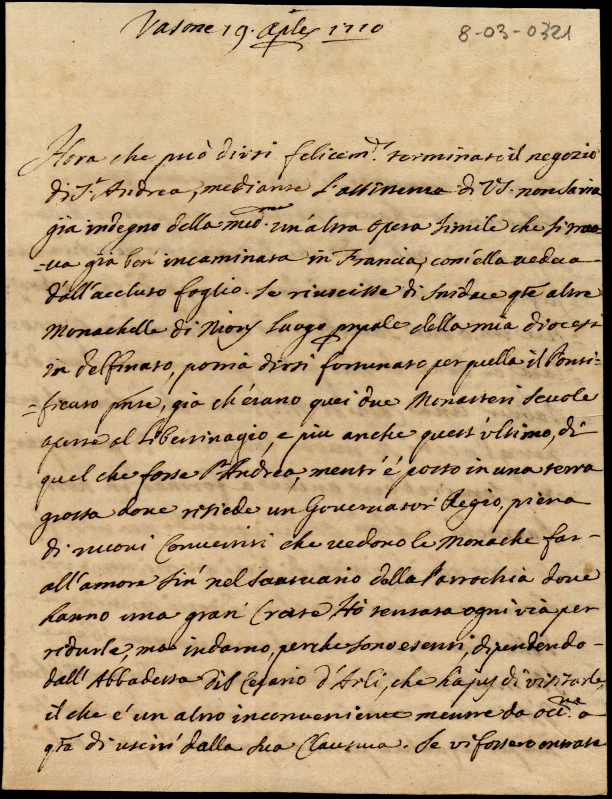 Vasone 19. Aple 1710
8-03-0321
Hora che può dirsi felicem.te terminato il negozio
di S. Andrea, mediante l'assistenza di VS. non saria
già indegno della med.ma un'altra opera simile che si trao-
=va già ben incaminata in Francia, com'ella vedera
dall'accluso foglio. Se riuscisse di snidare q.te altre
Monachelle di Nions luogo prpale della mia diocesi
in delfinato, potria dirsi fortunato per quella il Ponti-
=ficato pnte, già ch'erano quei due Monasteri scuole
aperte al libertinagio, e piu anche quest'ultimo, di
quel che forse S. Andrea, mentr'è posto in una terra
grossa dove risiede un Governator Regio, piena
di nuovi Convertiti che vedono le Monache far-
all'amore sin nel santuario della Parrochia dove
hanno una gran Grate. Hò tentata ogni via per
ridurle ma indarno, perche sono esenti, dipendendo-
dall'Abbadessa di S. Cesario d'Arli, che hà jus di visitarle
il che è un altro inconveniente mentre da occ.ne a
q.ta di uscir dalla sua Clausura. Se vi fossero entrate